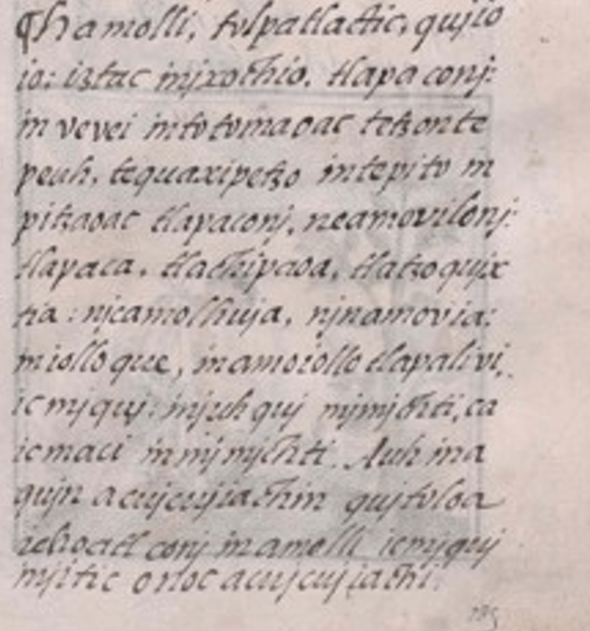 ¶ Hamolli, tolpatlactic, quijio
io: iztac injxochio, tlapaconj:
in vevei intotomaoac tetzonte
peuh, tequaxipetzo intepito in
pitzaoac tlapaconj, neamovilonj:
tlapaca, tlachipaoa, tlatzoquix
tia: njcamolhuja, njnamovia:
miolloque, inamoiollo tlapalivi,
ic mjquj: injuh quj mjmjchti, ca
ic maci in mjmjchti. Auh ina
qujn acujcujiachin qujtoloa
conj in amolli icmjquj
injitic onoc acujcujiachi: